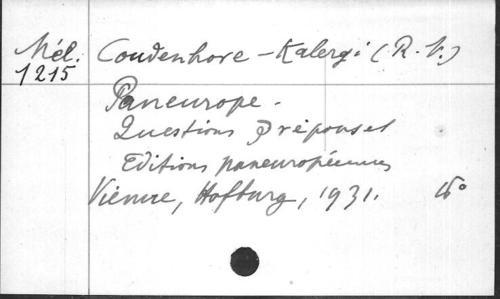 Mél. Coudenhove-Kalergi (R. N.)
1215
Paneurope.
Questions & réponses
Editions paneuropéennes
Vienne, Hofburg, 1931. 16°